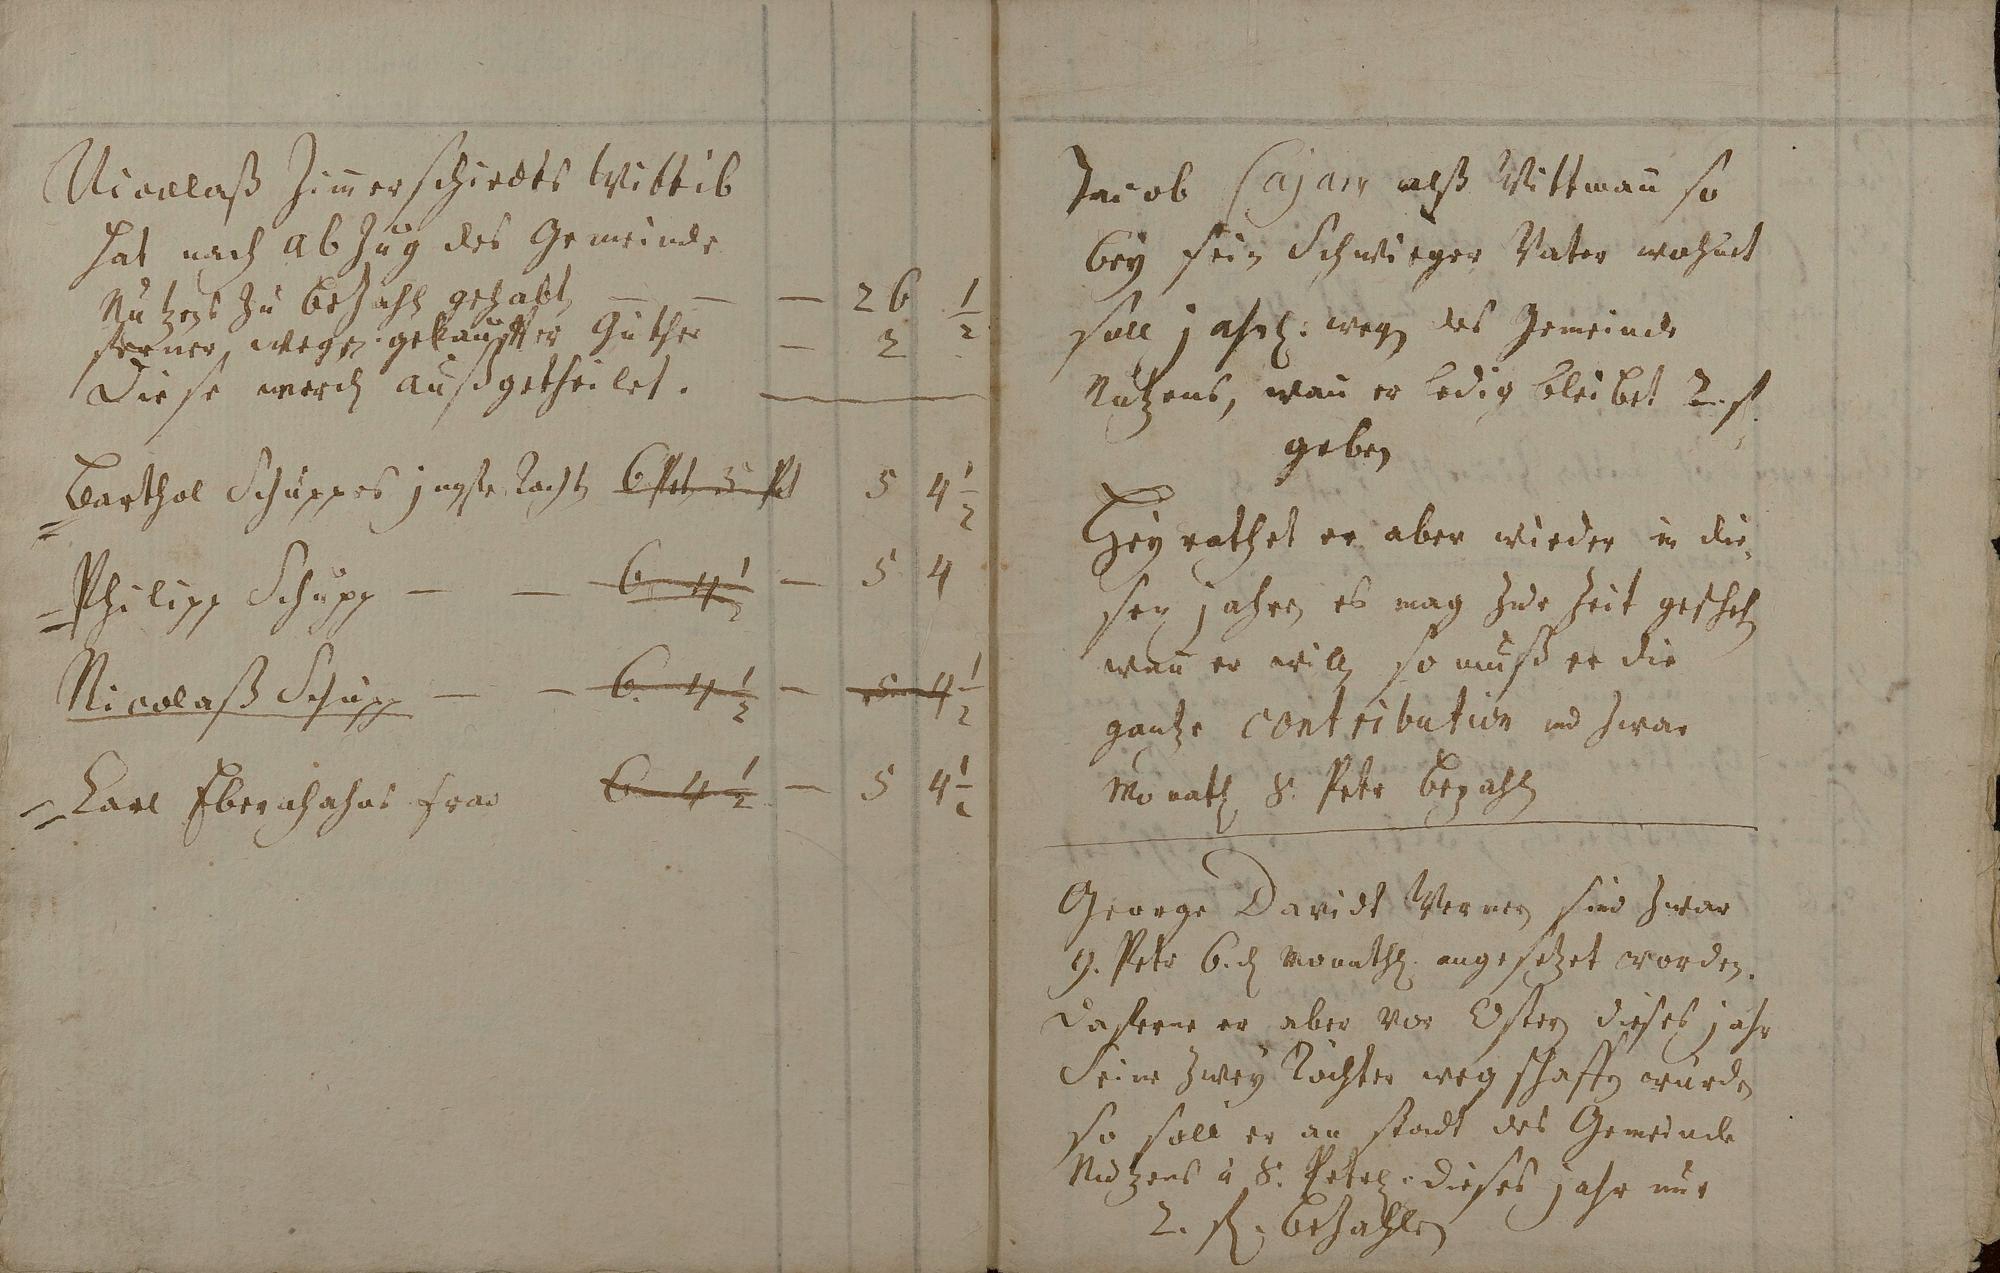 Nicolaß Zimmerschiedts Wittib
hat nach abzug des Gemeinde
Nutzens zu bezahlen gehabt — — — 26 1/2
ferner wegen gekauffter Güther — 2
Diese werden außgetheilet.
Barthol Schuppes jngste Tochter 5 4 1/2
Philipp Schupp — — 6. 4 1/2 — 5 4
Nicolaß Schupp — — 6. 4 1/2 — 5 4 1/2
Carl Ebershahns frau 6 4 1/2 — 5 4 1/2
Jacob Cajan alß Wittmann so
bey sein Schwieger Vater wohnet
soll jahrl: wegen des Gemeinde
Nutzens, wann er ledig bleibet 2. fl.
geben
Heyrathet er aber wieder in die-
sen jahren es mag zur Zeit geschehen
wann er will so muß er die
gantze contribution und zwar
Monathl 8. Petr bezahlen
George Davidt Wernern sind zwar
9. Petr 6. d monathl. angesetzet worden.
Daferne er aber vor Ostern dieses jahr
Seine zwey Töchter weg schaffen würde
so soll er an stadt des Gemeinde
Nutzens à 8. Petr: dieses jahr nur
2. fl. bezahlen